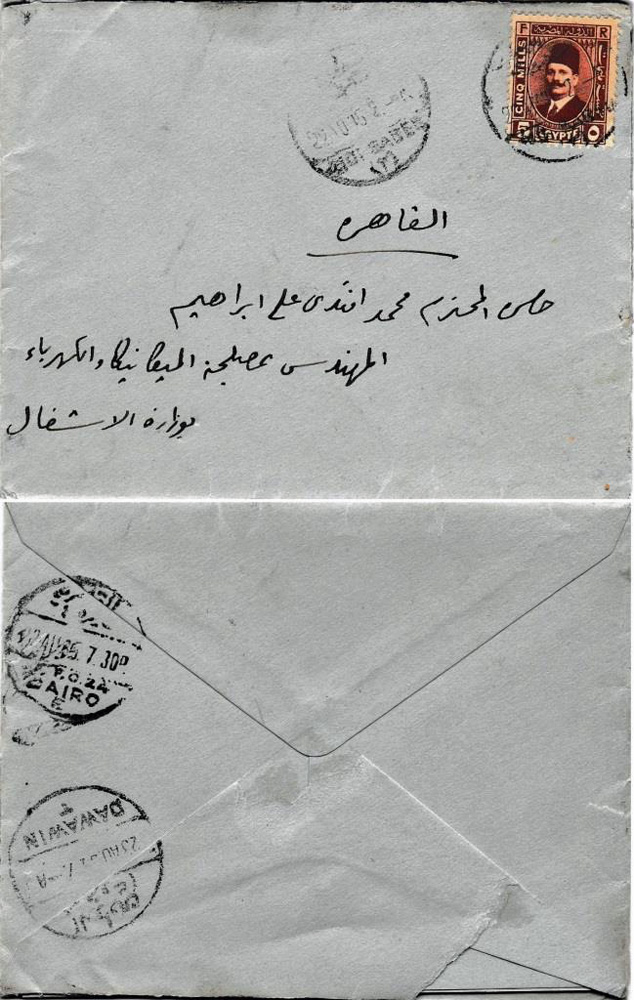 F R
CINQ MILLS
EGYPTE
SIDI-GABER
القاهره
حضرة المحترم محمد افندى على ابراهيم
المهندس بمصلحة الميكانيكا والكهرباء
بوزارة الاشغال
7.30P
P.O.24
CAIRO
DAWAWIN